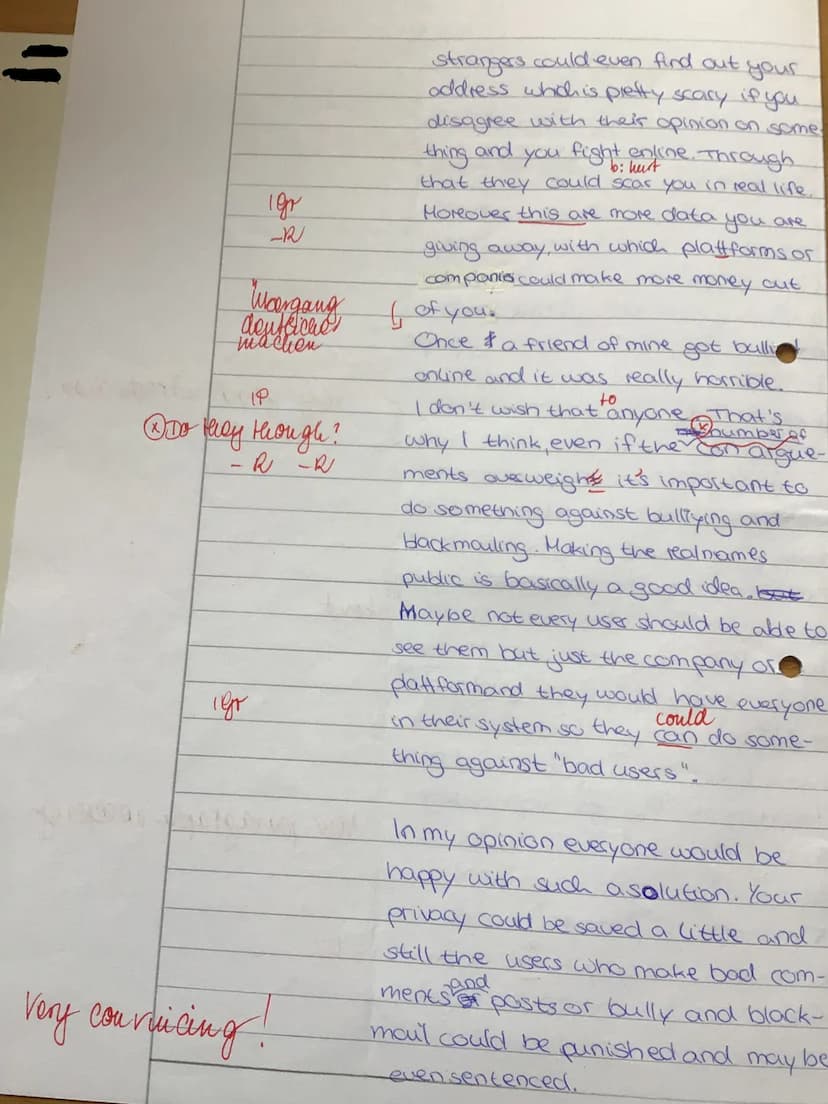 strangers could even find out your
address which is pretty scary if you
disagree with their opinion on some
thing and you fight online. Through
b: hurt
that they could scar you in real life.
1gr
Moreover this are more data you are
-R
giving away, with which plattforms or
companies could make more money out
Übergang
deutlicher
machen
of you.
Once a friend of mine got bullied
online and it was really horrible.
1P
to
I don't wish that anyone. That's
(x) Do they though?
(x) number of
why I think, even if the con argue-
-R -R
ments overweight it's important to
do something against bullying and
blackmauling. Making the real names
public is basically a good idea. but
Maybe not every user should be able to
see them but just the company or
plattform and they would have everyone
1gr
could
in their system so they can do some-
thing against "bad users".
In my opinion everyone would be
happy with such a solution. Your
privacy could be saved a little and
still the users who make bad com-
and
ments or posts or bully and black-
Very convincing!
mail could be punished and may be
even sentenced.